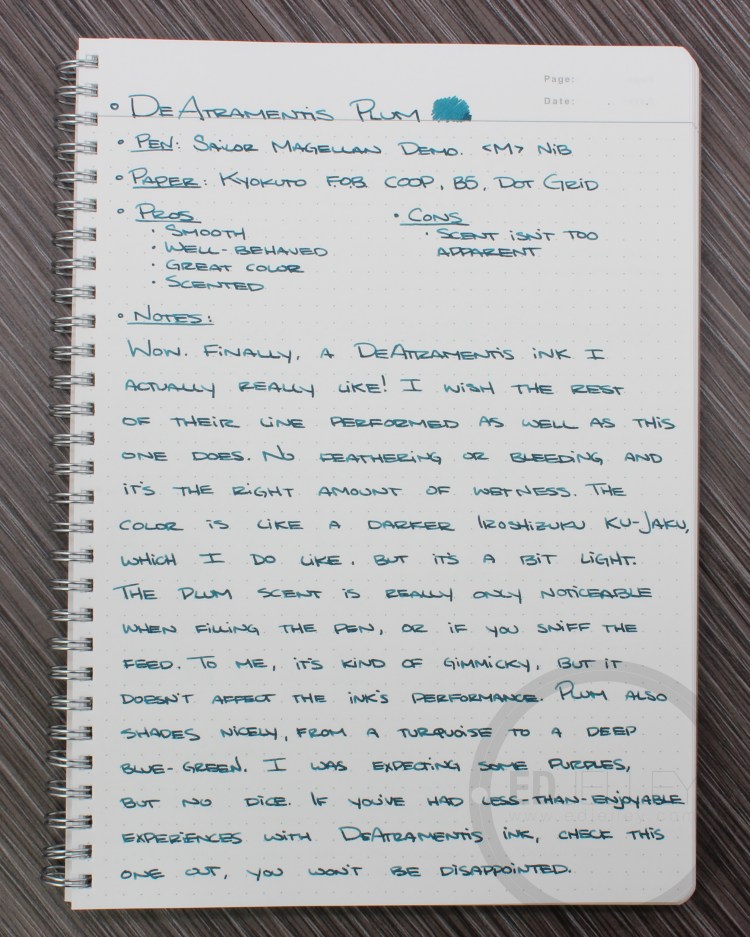 Page:
Date:
• DeAtramentis Plum
• Pen: Sailor Magellan Demo. <M> Nib
• Paper: Kyokuto F.O.B. COOP, B5, Dot Grid
• Pros
• Smooth
• Well-behaved
• Great color
• Scented
• Cons
• Scent isn't too
apparent
• Notes:
Wow. Finally, a DeAtramentis ink I
actually really like! I wish the rest
of their line performed as well as this
one does. No feathering or bleeding, and
it's the right amount of wetness. The
color is like a darker Iroshizuku Ku-Jaku,
which I do like, but it's a bit light.
The plum scent is really only noticeable
when filling the pen, or if you sniff the
feed. To me, it's kind of gimmicky, but it
doesn't affect the ink's performance. Plum also
shades nicely, from a turquoise to a deep
blue-green. I was expecting some purples,
but no dice. If you've had less-than-enjoyable
experiences with DeAtramentis ink, check this
one out, you won't be disappointed.
ED JELLEY
www.edjelley.com